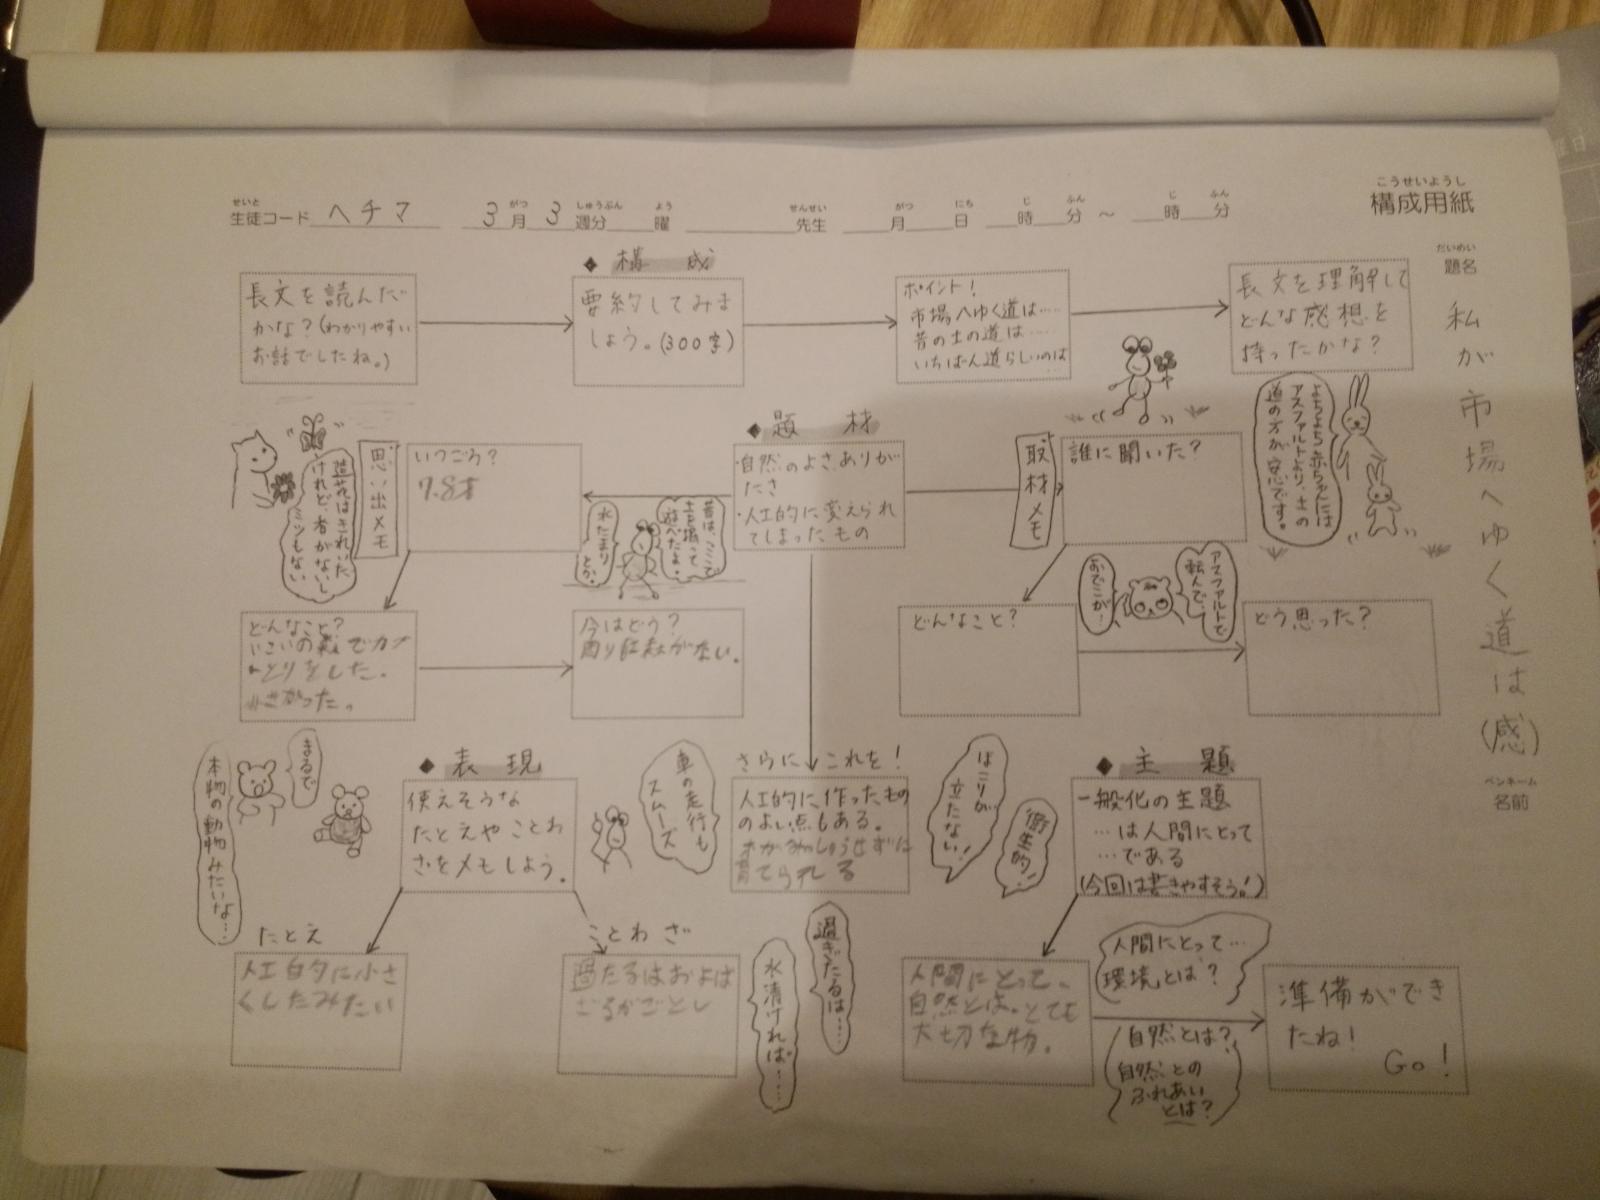 こうせいようし
構成用紙
せいと
生徒コード ヘチマ
がつ しゅうぶん よう
3月3週分 曜
せんせい
先生
がつ にち じ ふん じ ふん
月 日 時 分 〜 時 分
だいめい
題名
私が市場へゆく道は(感)
ペンネーム
名前
◆ 構 成
長文を読んだ
かな?(わかりやすい
お話でしたね。)
要約してみま
しょう。(300字)
ポイント!
市場へゆく道は……
昔の土の道は……
いちばん道らしいのは
…
長文を理解して
どんな感想を
持ったかな?
よちよち赤ちゃんには
アスファルトより、土の
道の方が安心です。
◆ 題 材
・自然のよさ、ありが
たさ
・人工的に変えられ
てしまったもの
思い出メモ
いつごろ?
7.8才
造花はきれいだ
けれど、香がないし
ミツもない
昔は、ここで
遊べたよ。
水たまり
とか。
取材メモ
誰に聞いた?
どんなこと?
でカブ
とりをした。
今はどう?
がない。
どんなこと?
アスファルトで
転んで…
おでこが!
どう思った?
◆ 表 現
使えそうな
たとえやことわ
ざをメモしよう。
まるで
本物の動物みたいな…
車の走行も
スムーズ
さらにこれを!
人工的に作ったもの
のよい点もある。
育てられる
ほこりが
立たない!
衛生的!
◆ 主 題
一般化の主題
…は人間にとって
…である
(今回は書きやすそう!)
たとえ
人工的に小さ
くしたみたい
ことわざ
過たるはおよば
ざるがごとし
過ぎたるは……
水清ければ……
人間にとって、
自然とは、とても
大切な物。
人間にとって…
環境とは?
自然とは?
自然との
ふれあい
とは?
準備ができ
たね!
Go!